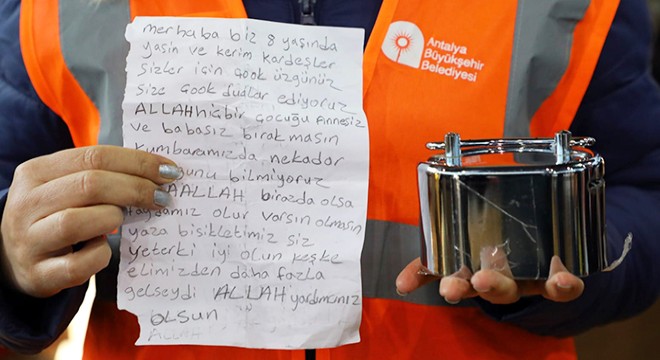 merhaba biz 8 yaşında
yasin ve kerim kardeşler
sizler için çook üzgünüz
size çook dualar ediyoruz
ALLAH hiçbir çocuğu annesiz
ve babasız bırakmasın
kumbaramızda nekadar
bilmiyoruz
AALLAH birazda olsa
faydamız olur varsın olmasın
yaza bisikletimiz siz
yeterki iyi olun keşke
elimizden daha fazla
gelseydi ALLAH yardımcınız
olsun
Antalya
Büyükşehir
Belediyesi